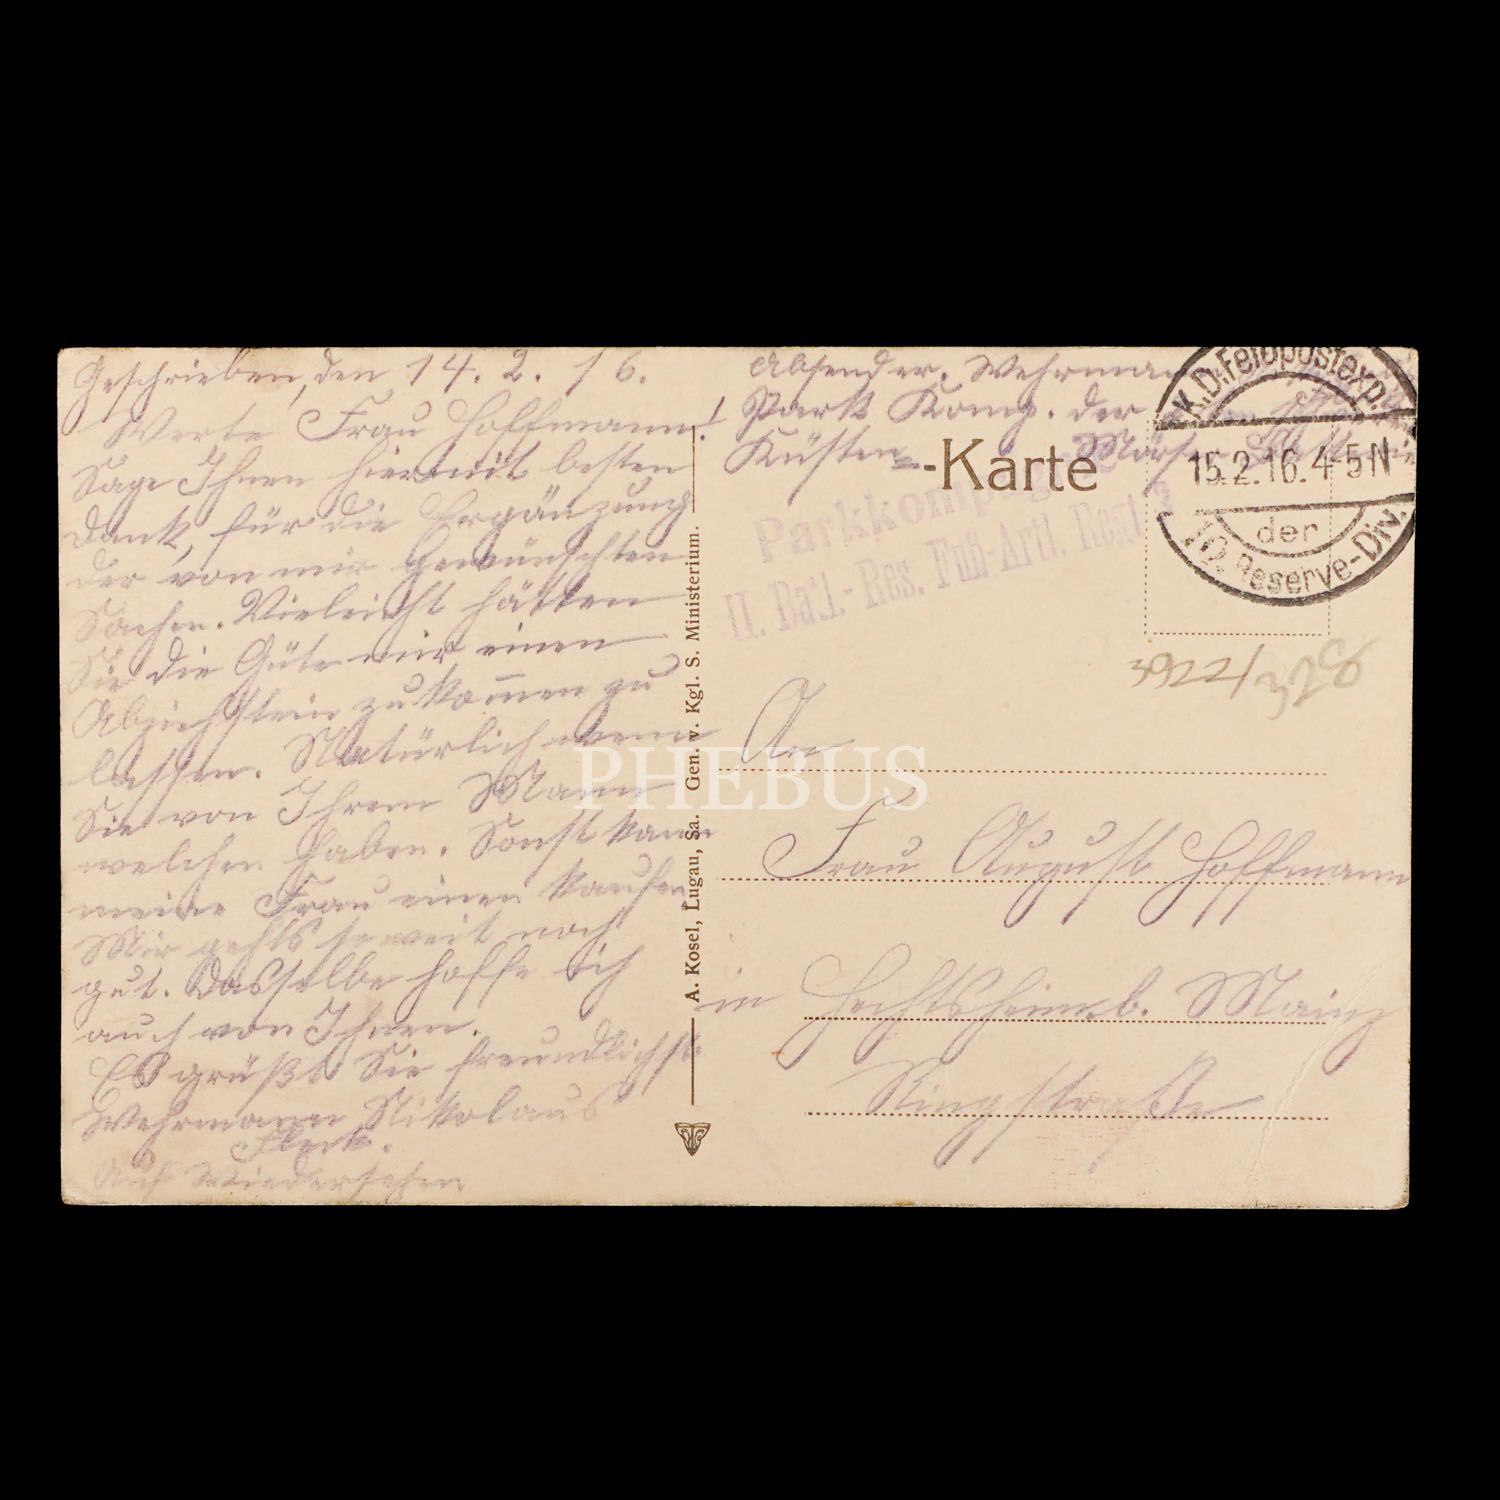 Geschrieben, den 14. 2. 16.
Werte Frau Hoffmann!
Sage Ihnen hiermit besten
Dank, für die Ergänzung
der von mir gewünschten
Sachen. Vieleicht hätten
Sie die Güte mir einen
Abziehstein zukommen zu
lassen. Natürlich wenn
Sie von Ihrem Mann
welchen haben. Sonst kann
meine Frau einen kaufen.
Mir gehts soweit noch
gut. Dasselbe hoffe ich
auch von Ihnen.
Es grüßt Sie freundlichst
Wehrmann Nikolaus
Fleck.
Auf Wiedersehen
A. Kosel, Lugau, Sa. Gen. v. Kgl. S. Ministerium.
Absender. Wehrmann
Park Komp. der
Küsten= Mörser
-Karte
Parkkomp
II. Bat'l.-Res. Fuß-Artl. Regt.
K.D. Feldpostexp.
15.2.16. 4-5N
der
Reserve-Div.
3922/
An
Frau August Hoffmann
in Hechtsheim b. Mainz
Ringstraße
PHEBUS